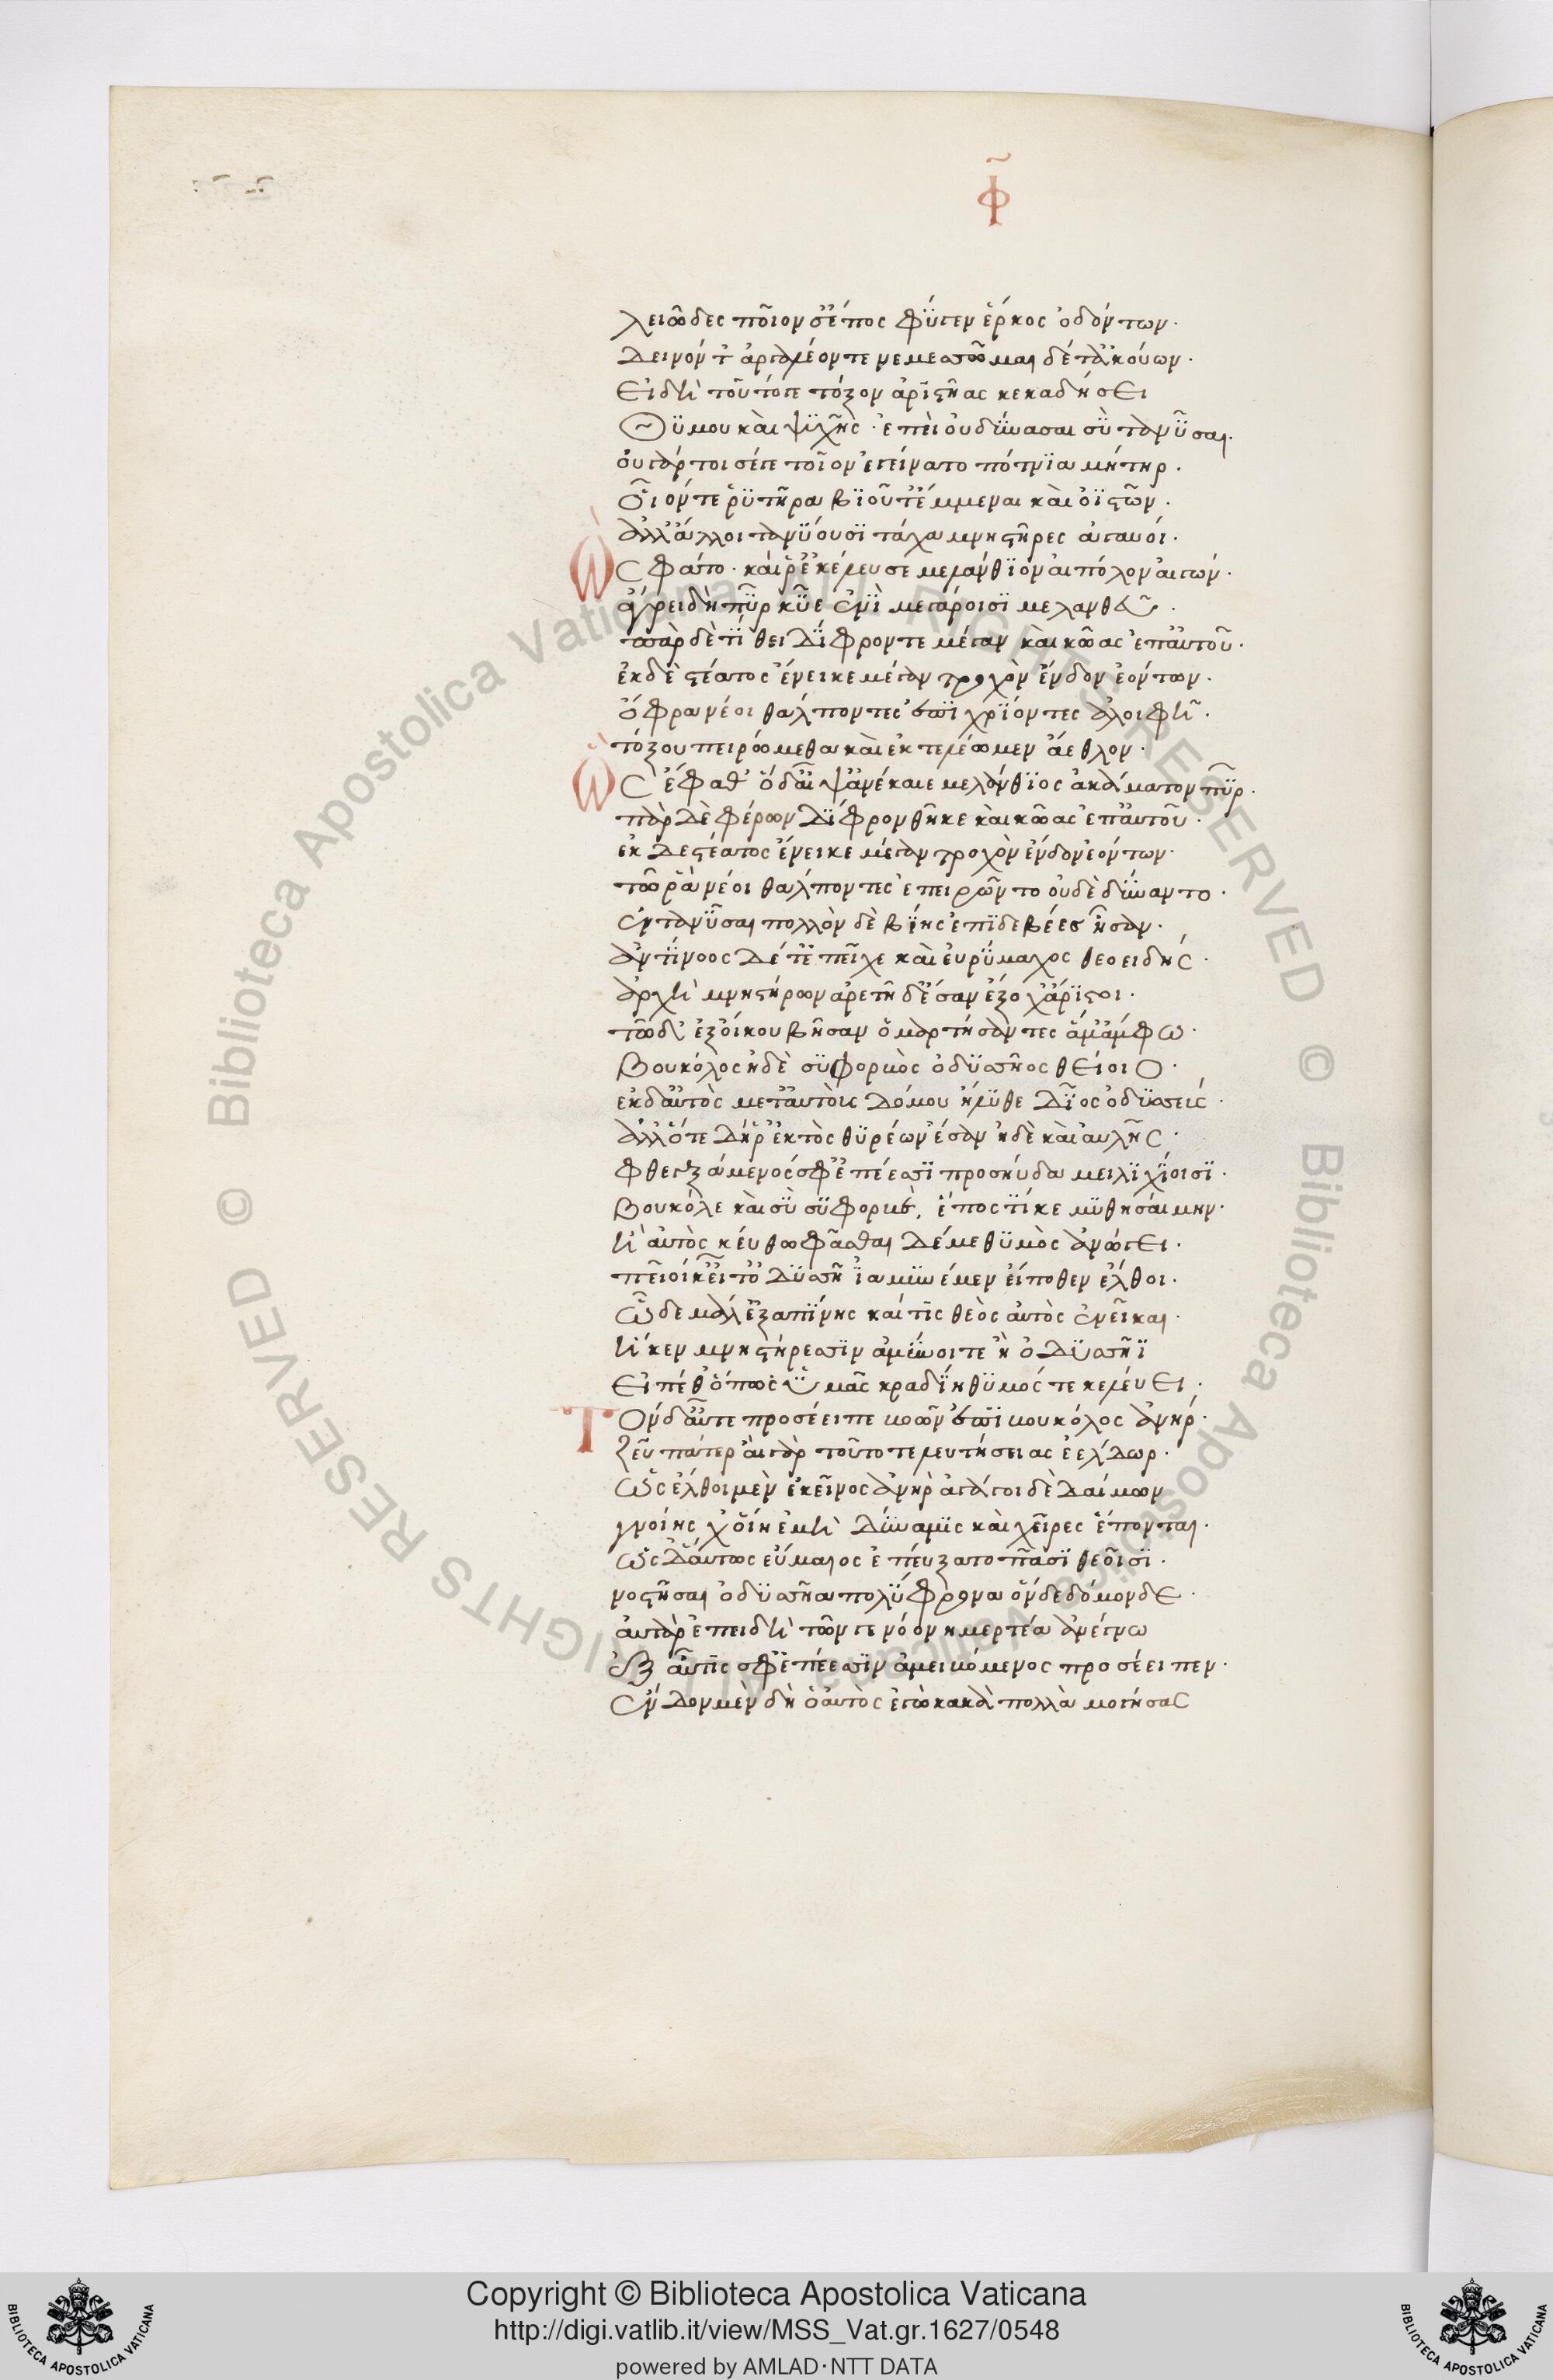 Φ̃
λειῶδες ποῖον σἔέπος φΰγεν ἕρκος ὀδόντων·
Δεινόν τ' ἀργαλέον τε νεμεσσῶμαι δέ τἀκούων·
Εἰ δὴ τοῦτόγε τόξον ἀρϊστῆας κεκαδήσει
Θϋμου καὶ ψϋχῆς· ἐπεὶ οὐ δύνασαι σὺ τανῦσαι·
ὀυ γάρ τοι σέγε τοῖον ἐγείνατο πότνϊα μήτηρ·
Οἷόν τε ῥϋτῆρα βϊοῦ τ' ἔμμεναι καὶ ὀϊστῶν·
ἀλλ' ἄλλοι τανΰουσϊ τάχα μνηστῆρες ἀγαυοί·
Ὣς φάτο· καί ῥ' ἐκέλευσε μελάνθϊον ἀιπόλον ἀιγῶν·
ἄγρει δὴ πῦρ κῦε ἐνϊ μεγάροισϊ μελανθεῦ·
πὰρ δὲ τΐθει Δΐφρον τε μέγαν καὶ κῶας ἐπ' ἀυτοῦ·
ἐκ δὲ στέατος ἔνεικε μέγαν τροχὸν ἔνδον ἐόντων·
ὄφρα νέοι θάλποντες ἐπϊ χρΐοντες ἀλοιφῆ·
τόξου πειρώμεθα καὶ ἐκτελέωμεν ἄεθλον·
Ὣς ἔφαθ' ὁ δ' αἶψ' ἀνέκαιε μελάνθϊος ἀκάματον πῦρ·
πὰρ Δὲ φέρων Δΐφρον θῆκε καὶ κῶας ἐπ' ἀυτοῦ·
ἐκ Δὲ στέατος ἔνεικε μέγαν τροχὸν ἔνδον ἐόντων·
τῶ ῥα νέοι θάλποντες ἐπειρῶντο οὐδὲ δύναντο·
ἐντανῦσαι πολλὸν δὲ βΐης ἐπϊδεβέες ἦσαν·
ἀντΐνοος Δέ τ' ἐπεῖχε καὶ ἐυρΰμαχος θεοειδής·
ἀρχὴ μνηστήρων ἀρετῆ δ' ἔσαν ἔξοχ' ἄρϊστοι·
τῶ δ' ἐξ οἴκου βῆσαν ὁμαρτήσαντες ἅμ' ἄμφω·
Βουκόλος ἠδὲ σϋφορμὸς ὀδϋσσῆος θείοιο·
ἐκ δ' ἀυτὸς μετ' ἀυτοὺς Δόμου ἤλϋθε Δῖος ὀδϋσσεύς·
ἀλλ' ὅτε Δή ῥ' ἐκτὸς θϋρέων ἔσαν ἠδὲ καὶ ἀυλῆς·
Φθεγξάμενός σφ' ἐπέεσσϊ προσηύδα μειλϊχΐοισϊ·
Βουκόλε καὶ σὺ σϋφορμὲ, ἔπος τΐ κε μϋθησάιμην·
ἢ ἀυτὸς κεύθω φᾶσθαι Δέ με θϋμὸς ἀνώγει·
ποῖοί κ' εἶτ' ὀΔϋσσῆϊ ἀμϋνέμεν εἴποθεν ἔλθοι·
Ὧδε μάλ' ἐξαπΐνης καί τις θεὸς ἀυτὸς ἐνεῖκαι·
ἤ κεν μνηστήρεσσϊν ἀμΰνοιτε ἢ ὀΔϋσσῆϊ
Εἴπέθ' ὅπως ὑμᾶς κραδΐη θϋμός τε κελέυει·
Τὸν δ' ἀῦτε προσέειπε κοῶν ἐπϊ κουκόλος ἀνήρ·
Ζεῦ πάτερ ἀιγὰρ τοῦτο τελευτήσειας ἐέλΔωρ·
Ὡς ἔλθοι μὲν ἐκεῖνος ἀνὴρ ἀγάγοι δὲ Δαίμων
γνοίης χ' ὅιη ἐμὴ Δύναμϊς καὶ χεῖρες ἕπονται·
Ὣς Δ' άυτως εὔμαιος ἐπέυξατο πᾶσϊ θεοῖσϊ·
νοστῆσαι ὀδϋσσῆα πολΰφρονα ὅνδε δόμονδε·
ἀυτὰρ ἐπειδὴ τῶν γε νόον νημερτέα ἀνέγνω
ἐξ ἀῦτϊς σφ' ἐπέεσσϊν ἀμειμόμενος προσέειπεν·
ἔνΔον μὲν δὴ ὅδ' ἀυτὸς ἐγὼ κακὰ πολλὰ μογήσας
Copyright © Biblioteca Apostolica Vaticana
http://digi.vatlib.it/view/MSS_Vat.gr.1627/0548
powered by AMLAD·NTT DATA
BIBLIOTECA APOSTOLICA VATICANA
BIBLIOTECA APOSTOLICA VATICANA
© Biblioteca Apostolica Vaticana ALL RIGHTS RESERVED
© Biblioteca Apostolica Vaticana ALL RIGHTS RESERVED